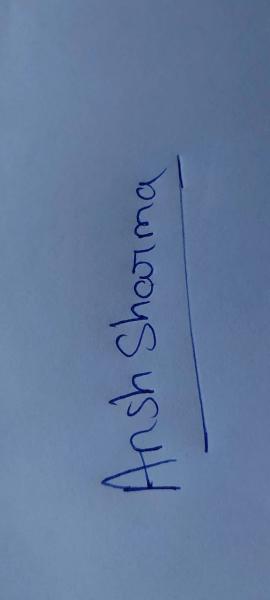 Ansh Sharma